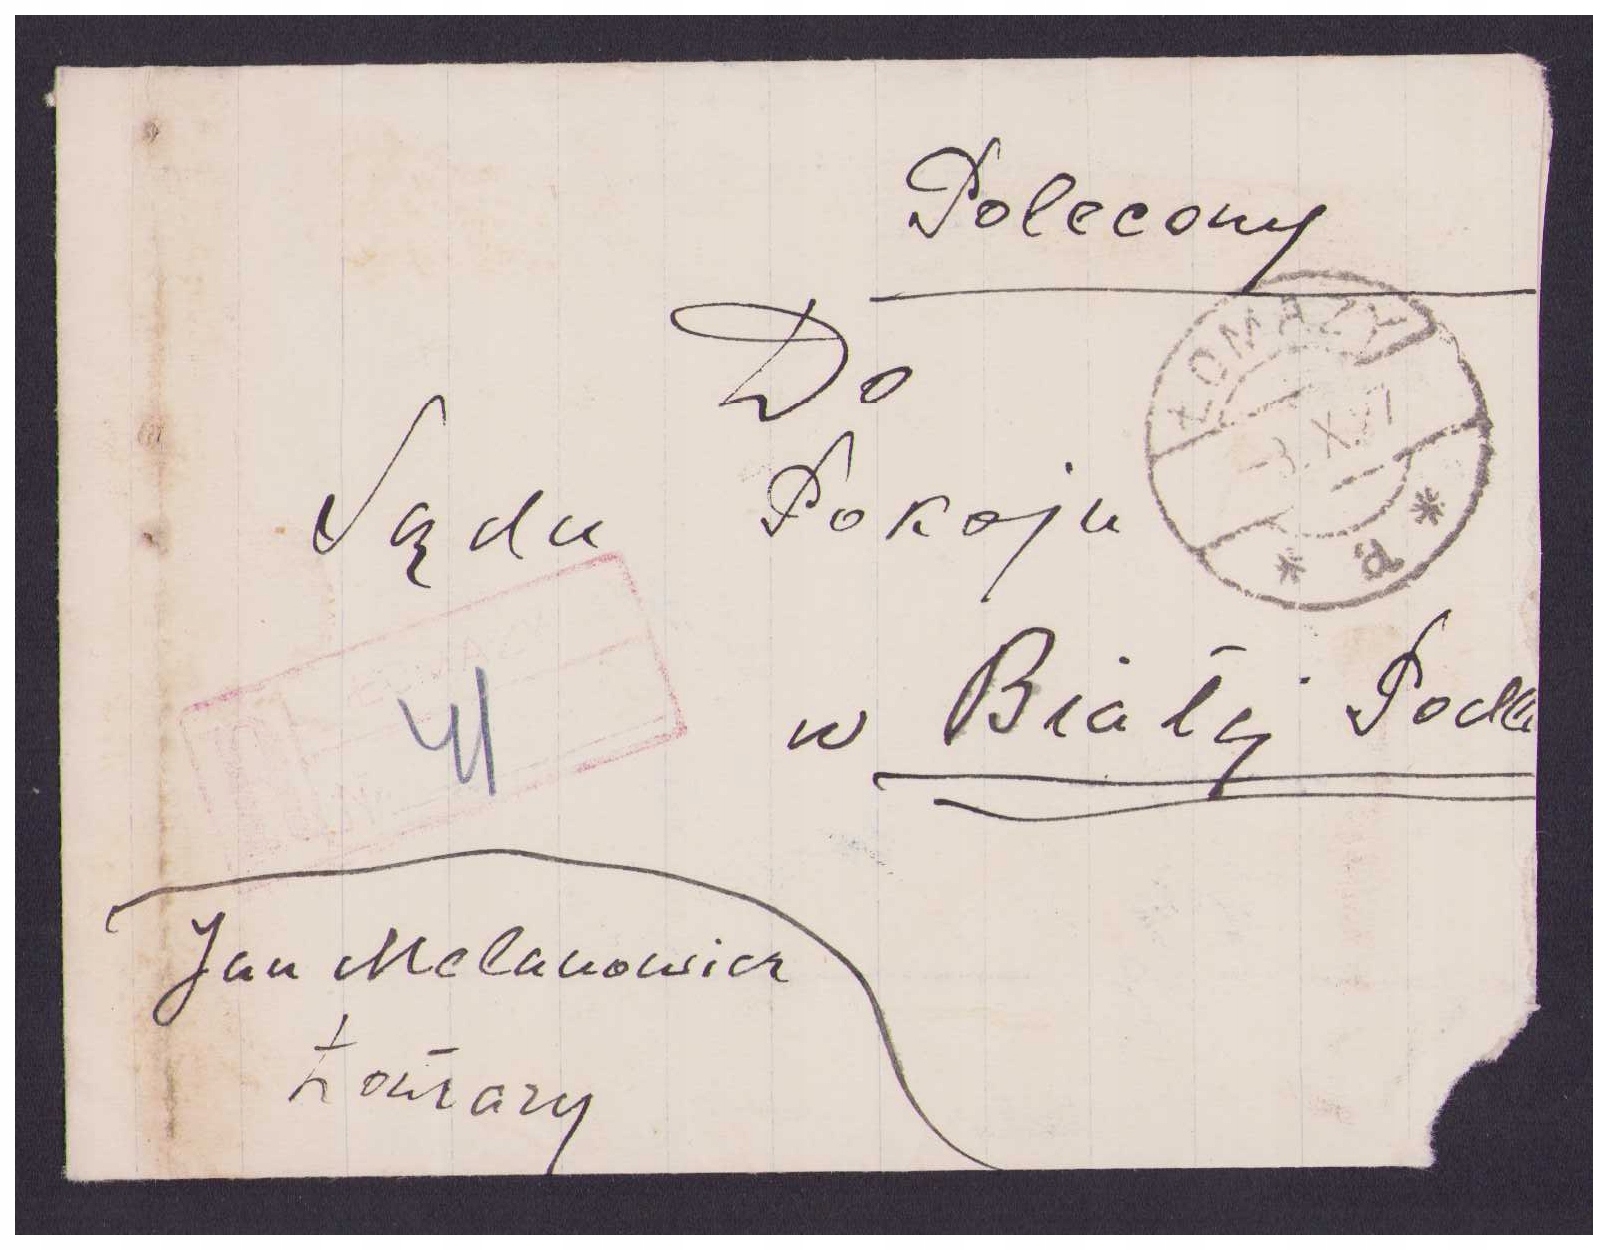 Polecony
Do
Sądu Pokoju
w Białej Podla
ŁOMAZY
-3.X.27
* a *
41
Jan Melanowicz
Łomazy